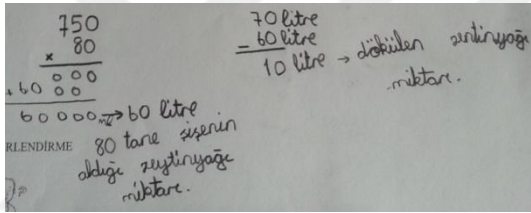 750
80
x
000
+60 00
60000 → 60 litre
80 tane şişenin
aldığı zeytinyağı
miktarı.
RLENDİRME
70 litre
- 60 litre
10 litre → dökülen zeytinyağı
miktarı.